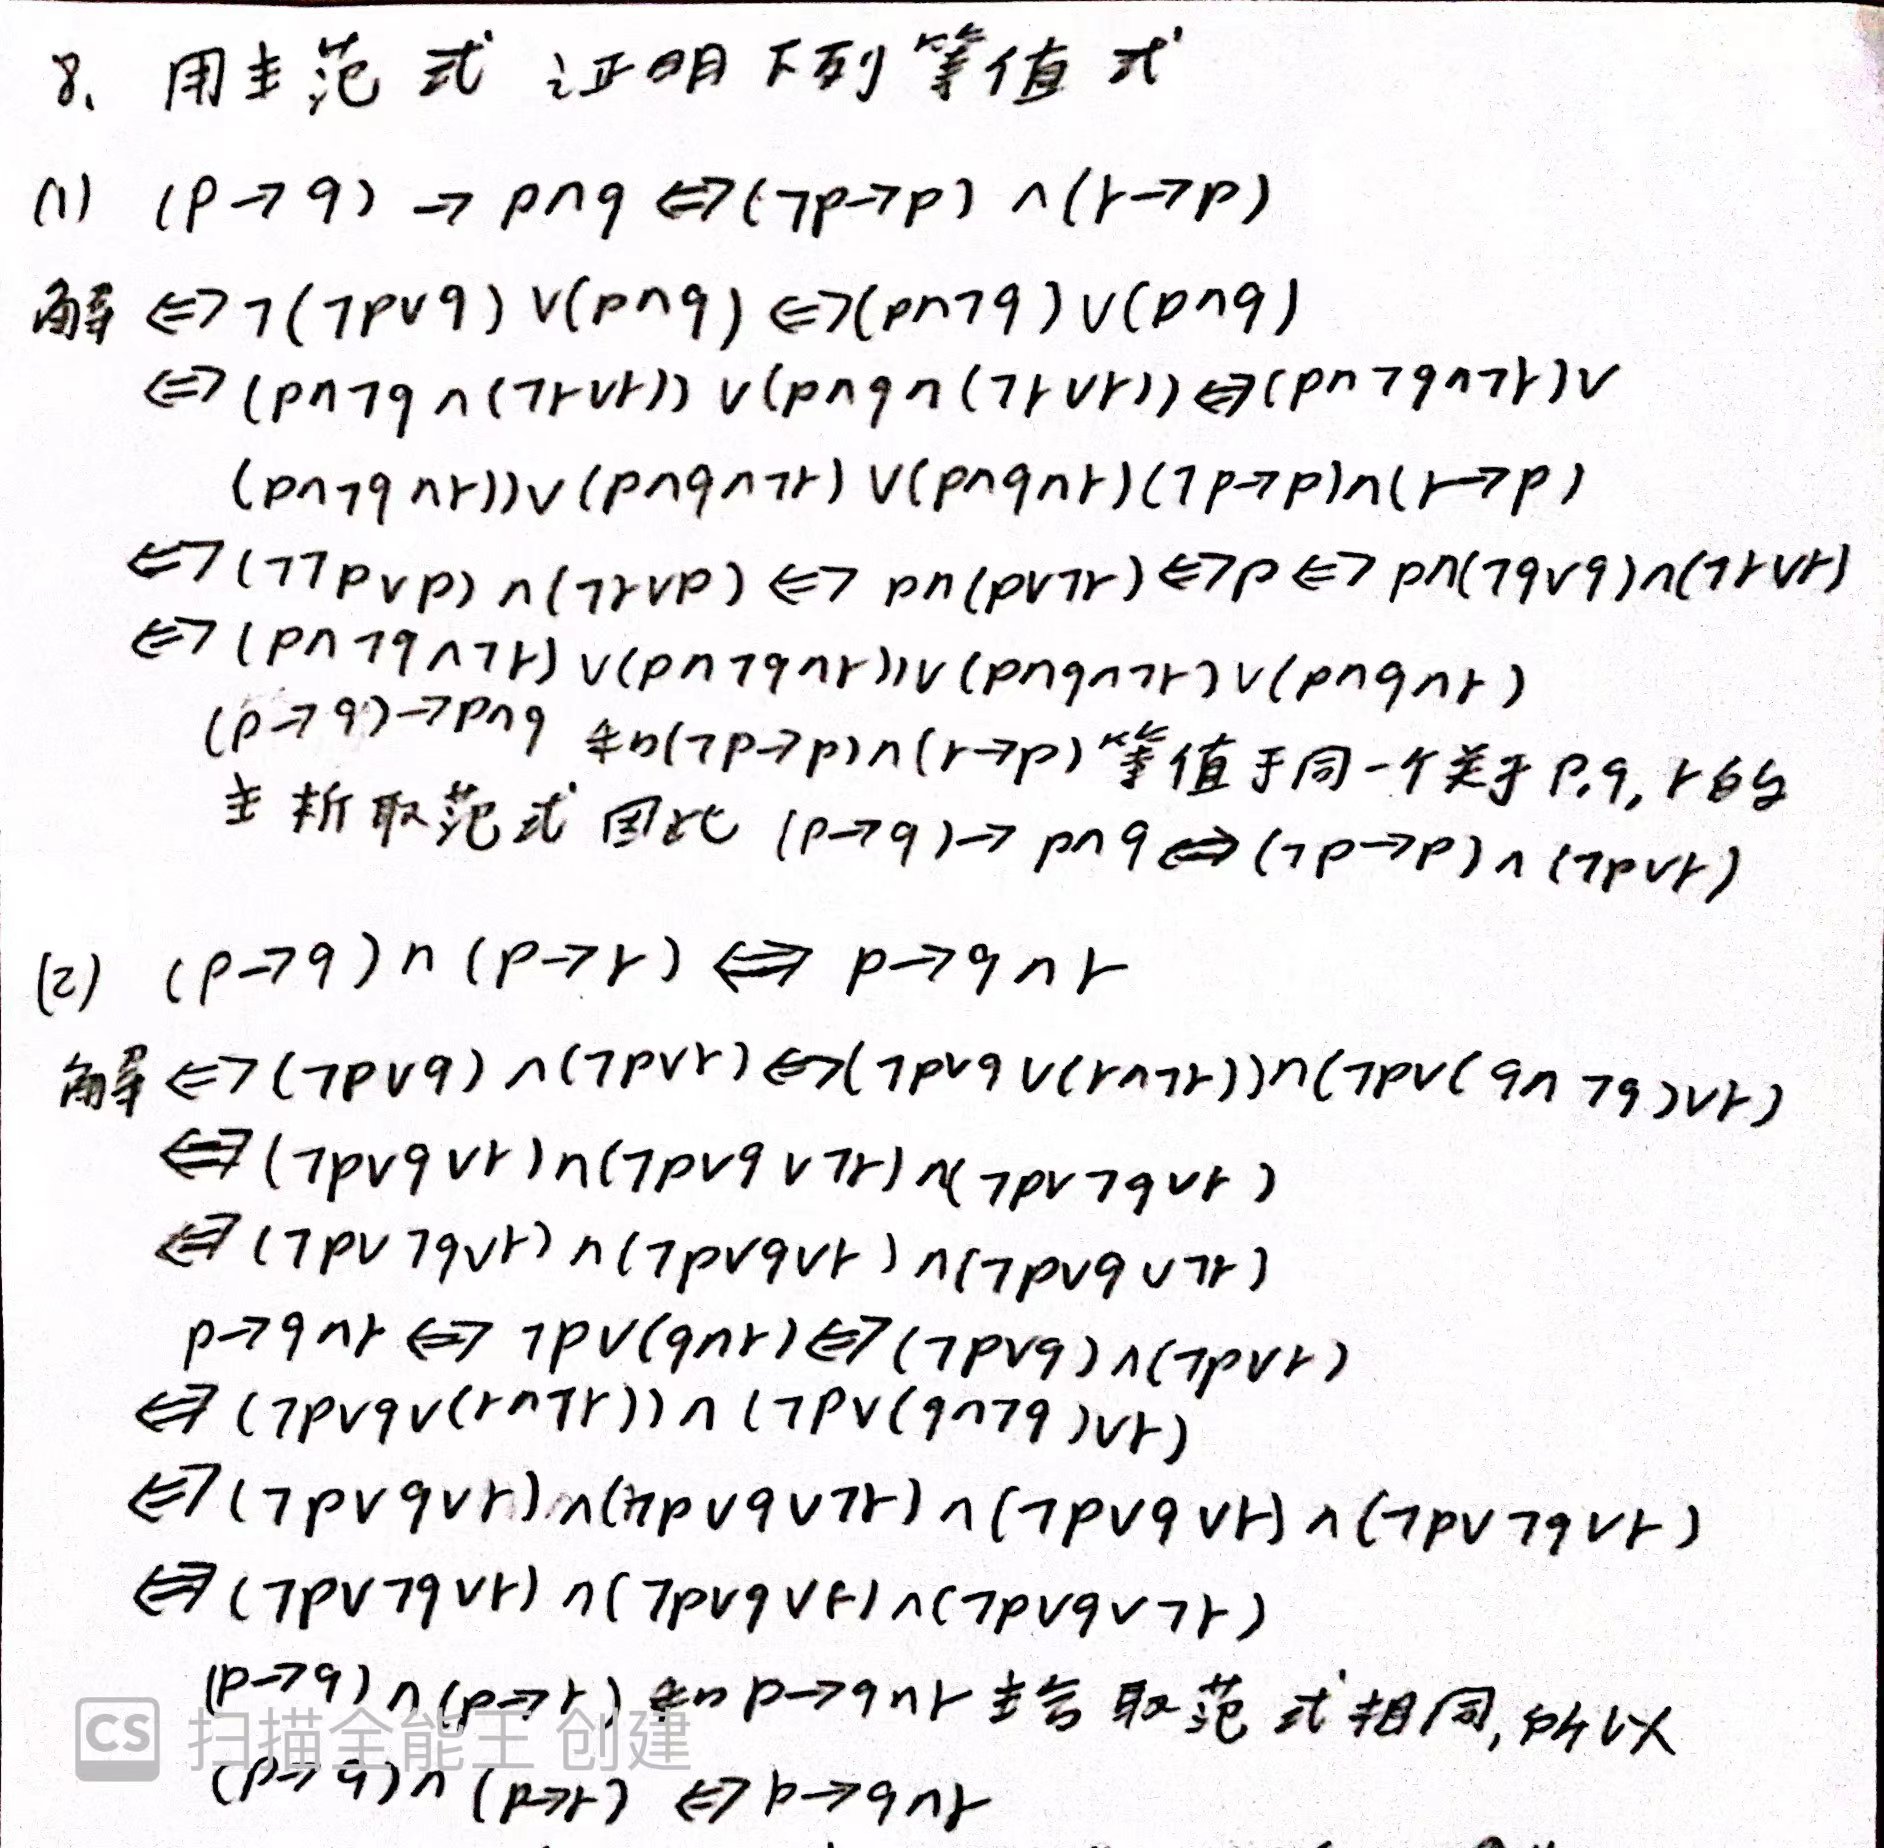 8. 用主范式 证明下列等值式
(1) (p→q) → p∧q ⇔ (¬p→p) ∧ (r→p)
解 ⇔ ¬(¬p∨q) ∨(p∧q) ⇔ (p∧¬q) ∨ (p∧q)
⇔ (p∧¬q ∧ (¬r∨r)) ∨ (p∧q∧(¬r∨r)) ⇔ (p∧¬q∧¬r)∨
(p∧¬q∧r))∨(p∧q∧¬r) ∨(p∧q∧r)(¬p→p)∧(r→p)
⇔ (¬¬p∨p) ∧(¬r∨p) ⇔ p∧(p∨¬r) ⇔ p ⇔ p∧(¬q∨q)∧(¬r∨r)
⇔ (p∧¬q∧¬r) ∨(p∧¬q∧r))∨(p∧q∧¬r)∨(p∧q∧r)
(p→q)→p∧q 和(¬p→p)∧(r→p)等值于同一个关于 p,q,r的
主析取范式 因此 (p→q)→ p∧q ⇔ (¬p→p) ∧ (¬p∨r)
(2) (p→q)∧(p→r) ⇔ p→q∧r
解 ⇔ (¬p∨q) ∧(¬p∨r) ⇔ (¬p∨q ∨(r∧¬r))∧(¬p∨(q∧¬q)∨r)
⇔ (¬p∨q∨r)∧(¬p∨q∨¬r)∧(¬p∨¬q∨r)
⇔ (¬p∨¬q∨r)∧(¬p∨q∨r)∧(¬p∨q∨¬r)
p→q∧r ⇔ ¬p∨(q∧r) ⇔ (¬p∨q)∧(¬p∨r)
⇔ (¬p∨q∨(r∧¬r))∧(¬p∨(q∧¬q)∨r)
⇔ (¬p∨q∨r)∧(¬p∨q∨¬r)∧(¬p∨q∨r)∧(¬p∨¬q∨r)
⇔ (¬p∨¬q∨r)∧(¬p∨q∨r)∧(¬p∨q∨¬r)
(p→q)∧(p→r) 和 p→q∧r 主合取范式相同,所以
CS 扫描全能王 创建
(p→q)∧(p→r) ⇔ p→q∧r